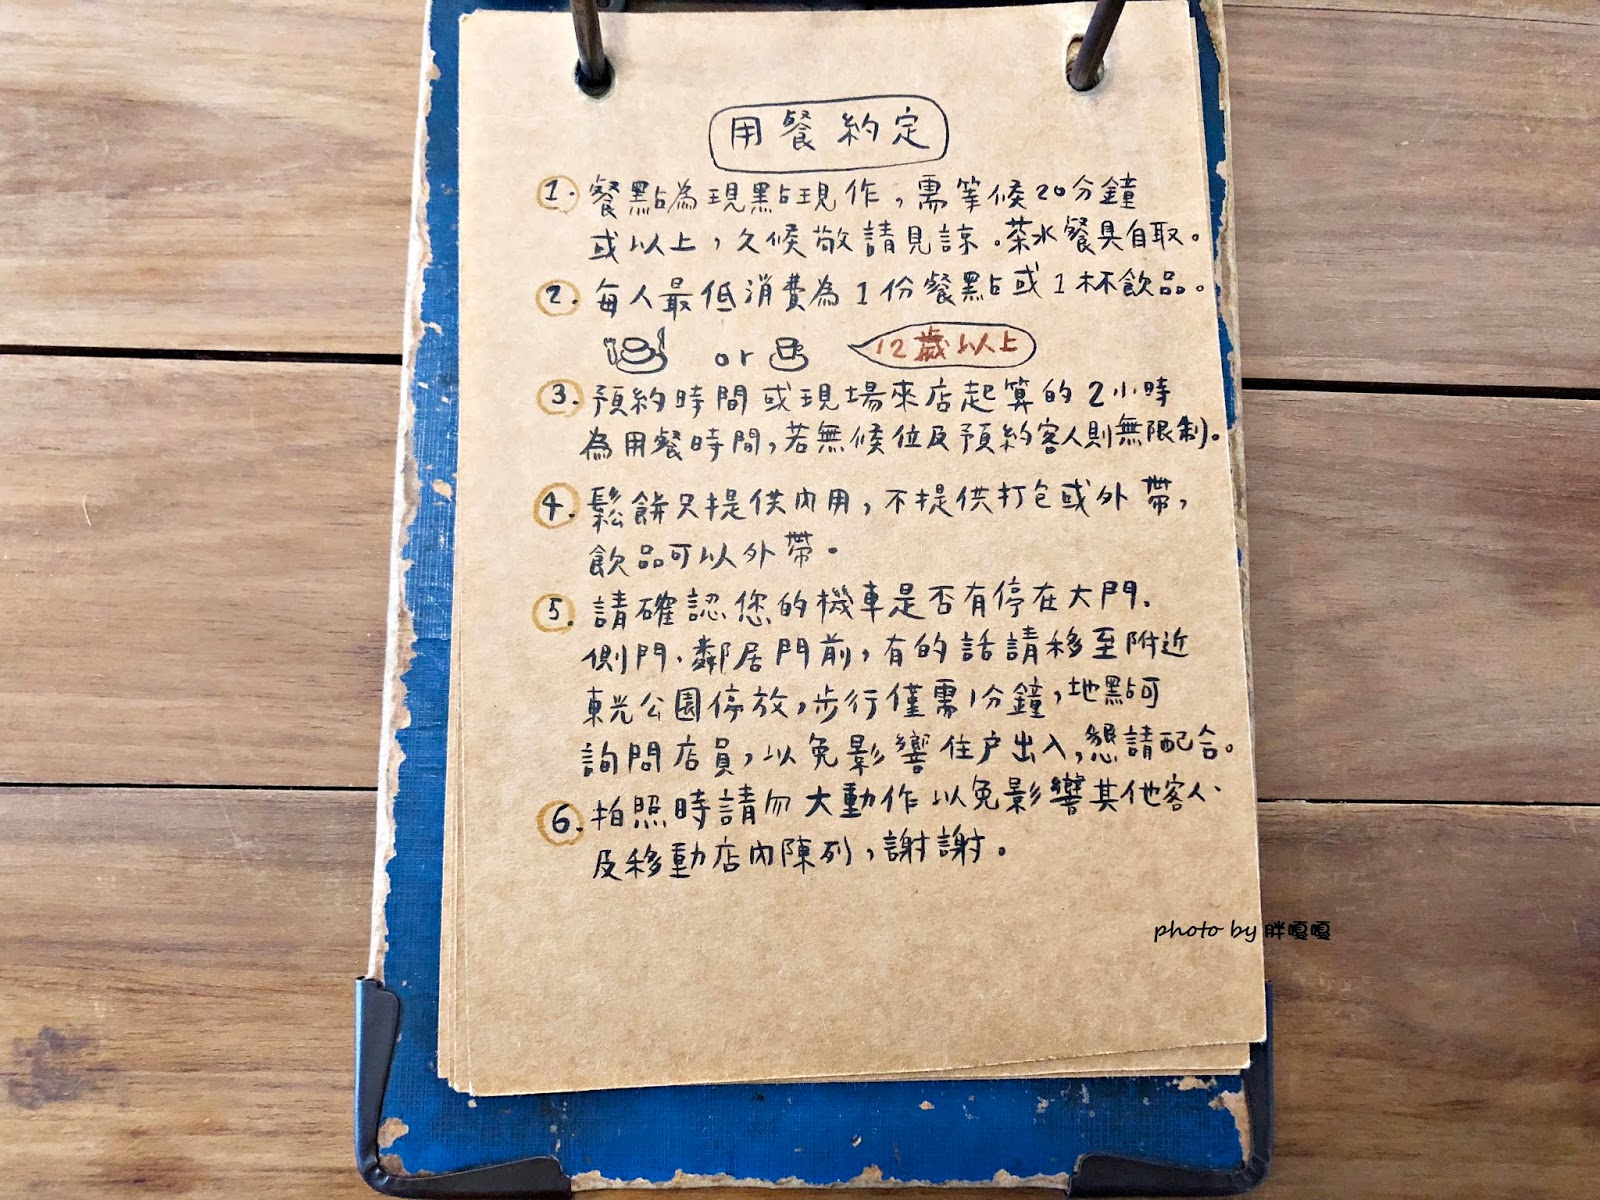 用餐約定
1. 餐點為現點現作，需等候20分鐘
或以上，久候敬請見諒。茶水餐具自取。
2. 每人最低消費為1份餐點或1杯飲品。
or 12歲以上
3. 預約時間或現場來店起算的2小時
為用餐時間，若無候位及預約客人則無限制。
4. 鬆餅只提供內用，不提供打包或外帶，
飲品可以外帶。
5. 請確認您的機車是否有停在大門、
側門、鄰居門前，有的話請移至附近
東光公園停放，步行僅需1分鐘，地點可
詢問店員，以免影響住戶出入，懇請配合。
6. 拍照時請勿大動作以免影響其他客人、
及移動店內陳列，謝謝。
photo by 胖嘎嘎